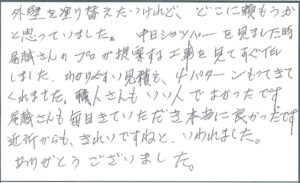 外壁を塗り替えたいけれど、どこに頼もうか
と思っていました。中日ショッパーを見ました時
尾崎さんのプロが提案する工事を見てすぐTEL
しました。わかりやすい見積も、4パターンもってきて
くれました。職人さんもいい人でよかったです
尾崎さんも毎日きていただき本当に良かったです
近所からも、きれいですねと、いわれました。
ありがとうございました。